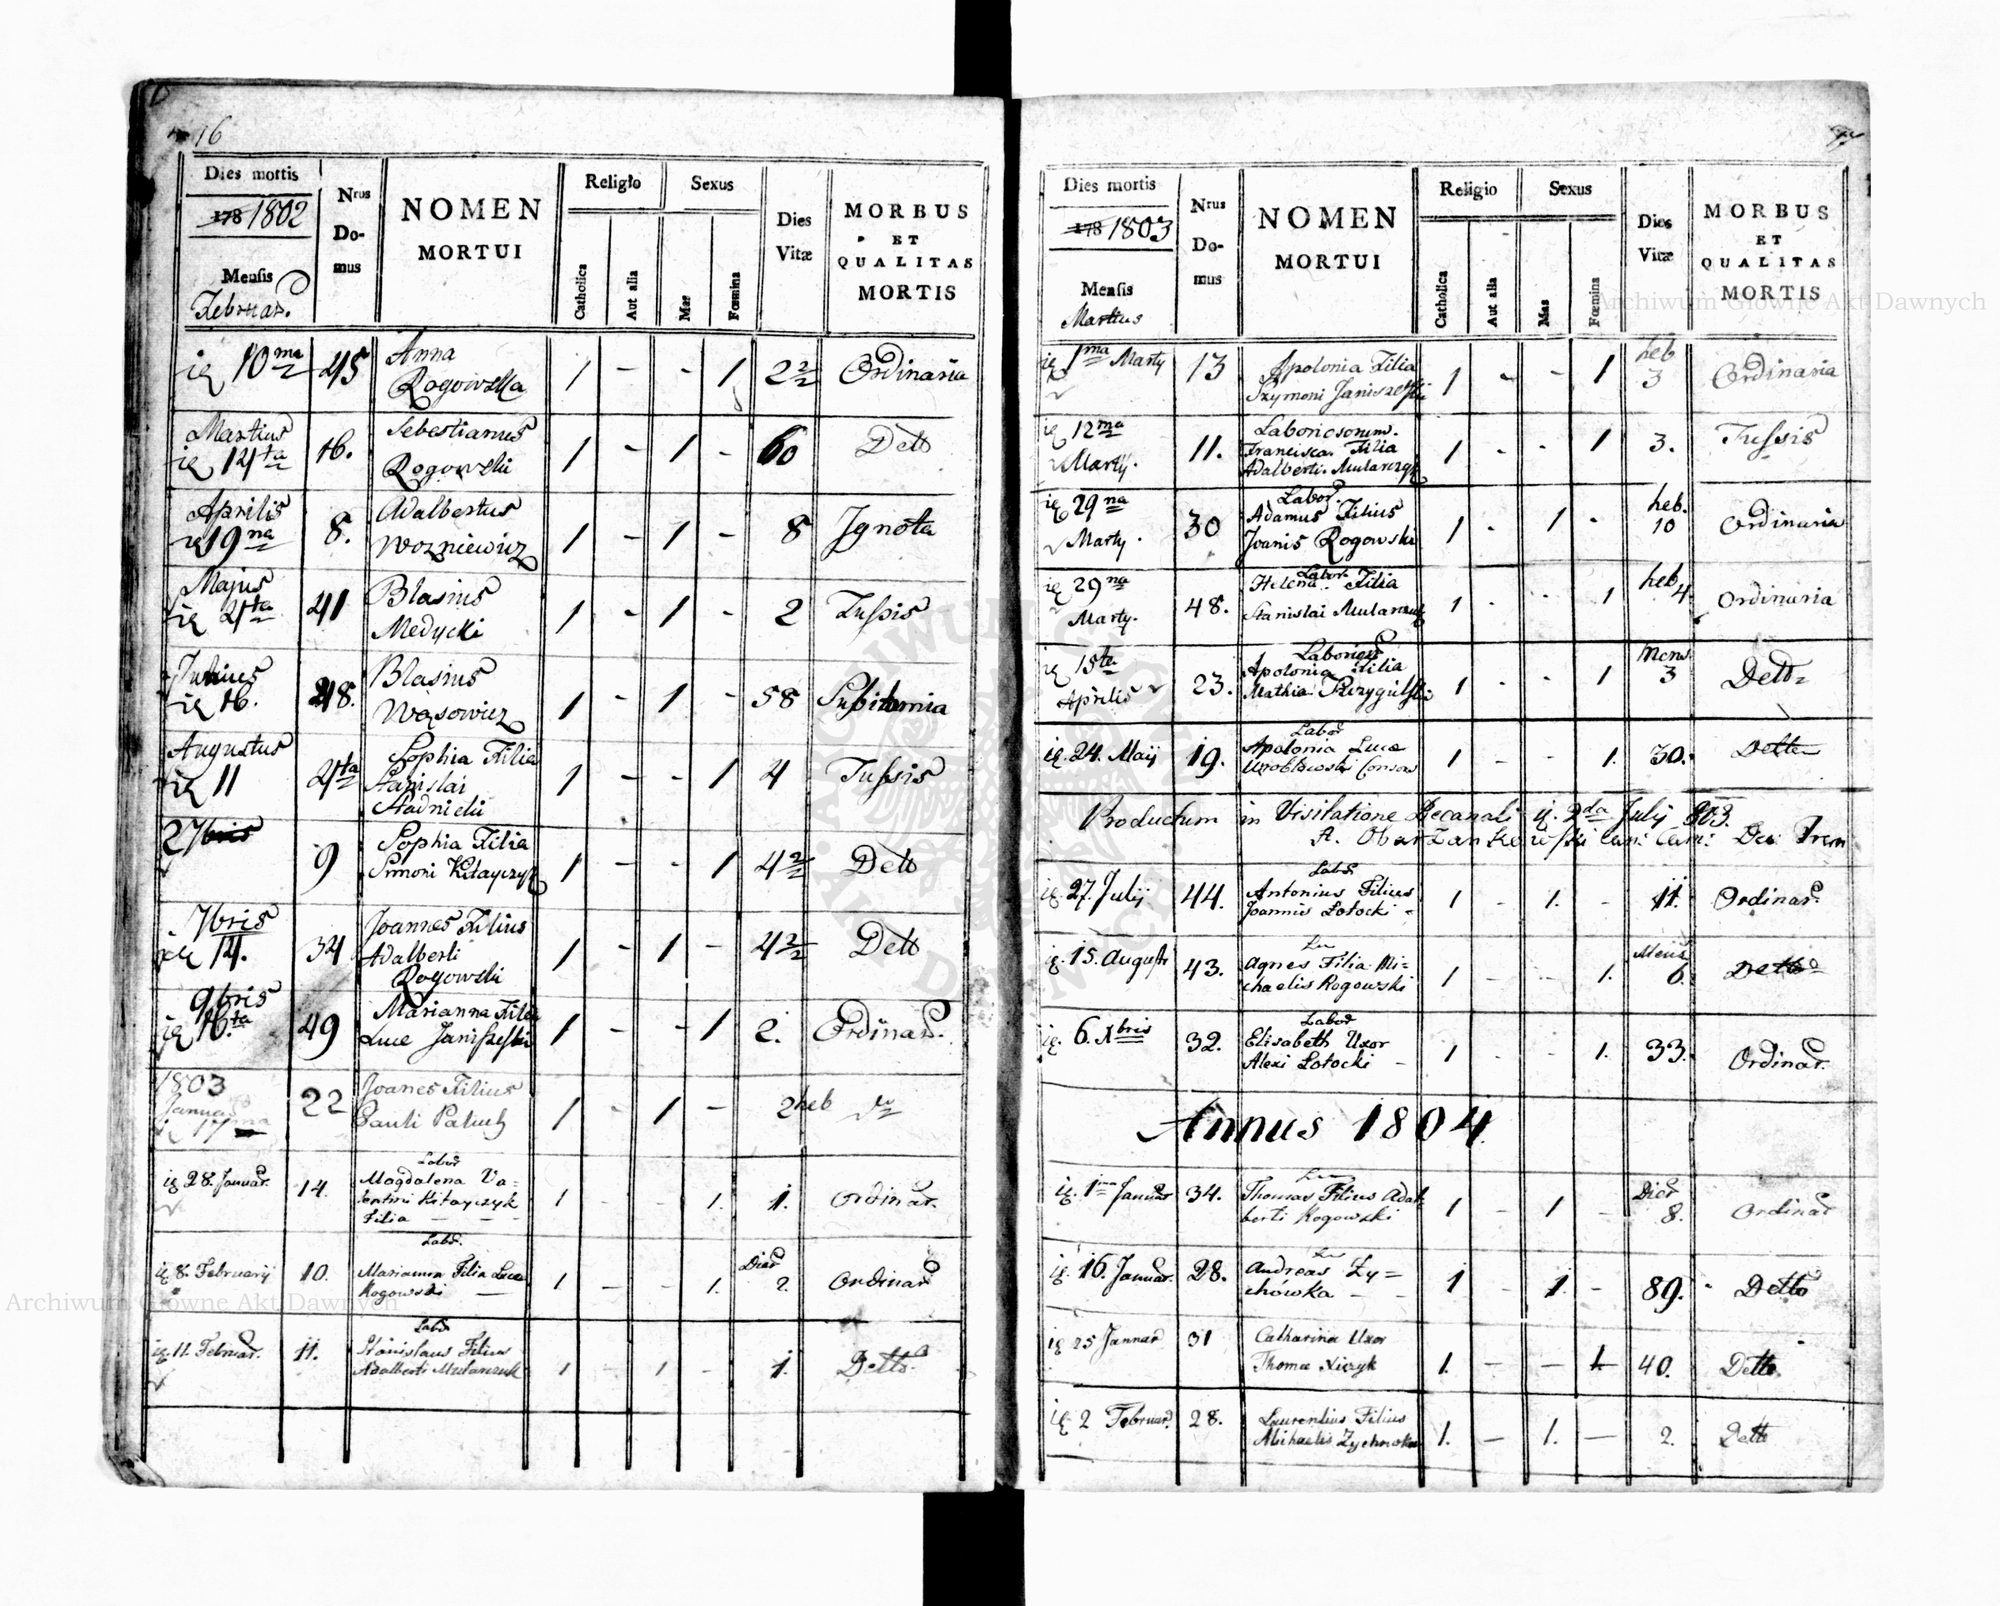 16
Dies mortis
178 1802
Mensis
Februar.
Nrus
Do-
mus
NOMEN
MORTUI
Religio
Sexus
Catholica
Aut alia
Mas
Fœmina
Dies
Vitæ
MORBUS
ET
QUALITAS
MORTIS
10ma 45 Anna
Rogowska 1 - - 1 2 Ordinaria
Martius
14ta 16. Sebestianus
Rogowski 1 - 1 - 60 Detto
Aprilis
19na 8. Adalbertus
Wozniewicz 1 - 1 - 8 Ignota
Majus
4ta 41 Blasius
Medycki 1 - 1 - 2 Tussis
Junius
16. 48. Blasius
Wąsowicz 1 - 1 - 58
Augustus
11 4ta Sophia Filia
Stanislai
Stadnicki 1 - - 1 4 Tussis
27bris
9 Sophia Filia
Simoni Kitayczyk 1 - - 1 4 Detto
7bris
14. 34 Joannes Filius
Adalberti
Rogowski 1 - 1 - 4 Detto
9bris
16.ta 49 Marianna Filia
Luce Janiszeski 1 - - 1 2. Ordinar.
1803
Januar
17ma 22 Joanes Filius
Pauli Paluch 1 - 1 - 2 heb do
28. Januar. 14. Labor
Magdalena Va=
lentini Kitayczyk
Filia 1 - - 1. 1. Ordinar.
8. February 10. Labor.
Marianna Filia Lucae
Rogowski 1 - - 1. Dier
2. Ordinar
11. Februar. 11. Labor
Stanislaus Filius
Adalberti Mularczuk 1 - 1 - 1. Detto.
Dies mortis
178 1803
Mensis
Martius
Nrus
Do-
mus
NOMEN
MORTUI
Religio
Sexus
Catholica
Aut alia
Mas
Fœmina
Dies
Vitæ
MORBUS
ET
QUALITAS
MORTIS
1ma Marty 13 Apolonia Filia
Szymoni Janiszeski 1 - - 1 heb
3 Ordinaria
12ma
Marty. 11. Laboriosorum.
Francisca Filia
Adalberti Mularczyk 1 - - 1 3. Tussis
29na
Marty. 30 Labor.
Adamus Filius
Joanis Rogowski 1 - 1 - heb.
10 Ordinaria
29na
Marty. 48. Labor.
Helena Filia
Stanislai Mularczuk 1 - - 1 heb
4 Ordinaria
15ta
Aprilis 23. Labor
Apolonia Filia
Mathia 1 - - 1 Mens
3 Detto
24. Maij 19. Labor
Apolonia Luce
Wroblewski Consors 1 - - 1. 30. Detto
Productum in Visitatione Decanali 2da July 803.
27. Julij 44. Labor
Antonius Filius
Joannis Lotocki 1 - 1. - 11. Ordinar.
15. Augusti 43. Agnes Filia Mi=
chaelis Rogowski 1 - - 1. Mens
6. Detto
6. Xbris 32. Labor
Elisabeth Uxor
Alexi Lotocki 1 - - 1. 33. Ordinar.
Annus 1804
1ma Januar 34. Thomas Filius Adal=
berti Rogowski 1 - 1 - Dier
8. Ordinar
16. Januar. 28. Andreas Zy=
chowka 1 - 1. - 89. Detto
25 Januar 31 Catharina Uxor
Thomæ 1. - - 1. 40. Detto.
2 Februar. 28. Laurentius Filius
Michaelis Zychowka 1. - 1. - 2. Detto
Archiwum Główne Akt Dawnych
Archiwum Główne Akt Dawnych
ARCHIWUM GŁÓWNE
AKT DAWNYCH